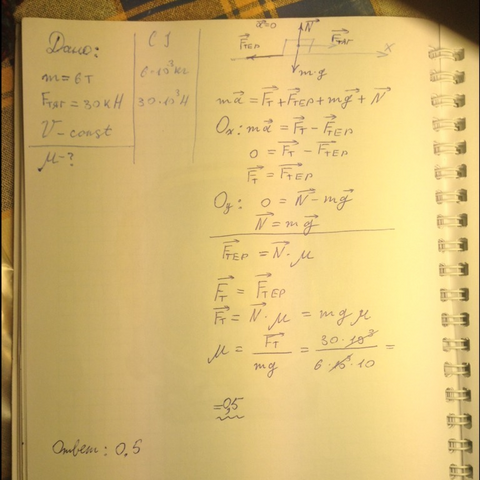 Дано:
m = 6т
Fтяг = 30кН
V - const
μ - ?
СИ
6·10³кг
30·10³Н
a⃗=0
N⃗
F⃗тер
F⃗тяг
x
mg⃗
ma⃗ = F⃗т + F⃗тер + mg⃗ + N⃗
Ox: ma⃗ = F⃗т - F⃗тер
0 = F⃗т - F⃗тер
F⃗т = F⃗тер
Oy: 0 = N⃗ - mg⃗
N⃗ = mg⃗
F⃗тер = N⃗ · μ
F⃗т = F⃗тер
F⃗т = N⃗ · μ = mgμ
μ = F⃗т / mg = 30·10³ / 6·10³·10 =
= 0,5
Ответ: 0,5